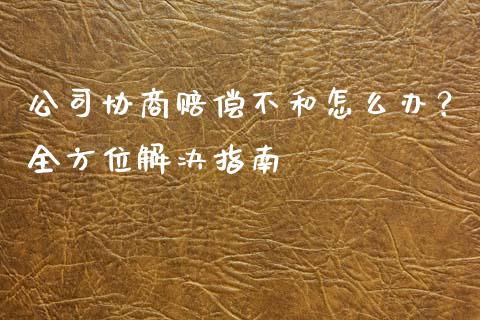 公司协商赔偿不和怎么办？
全方位解决指南